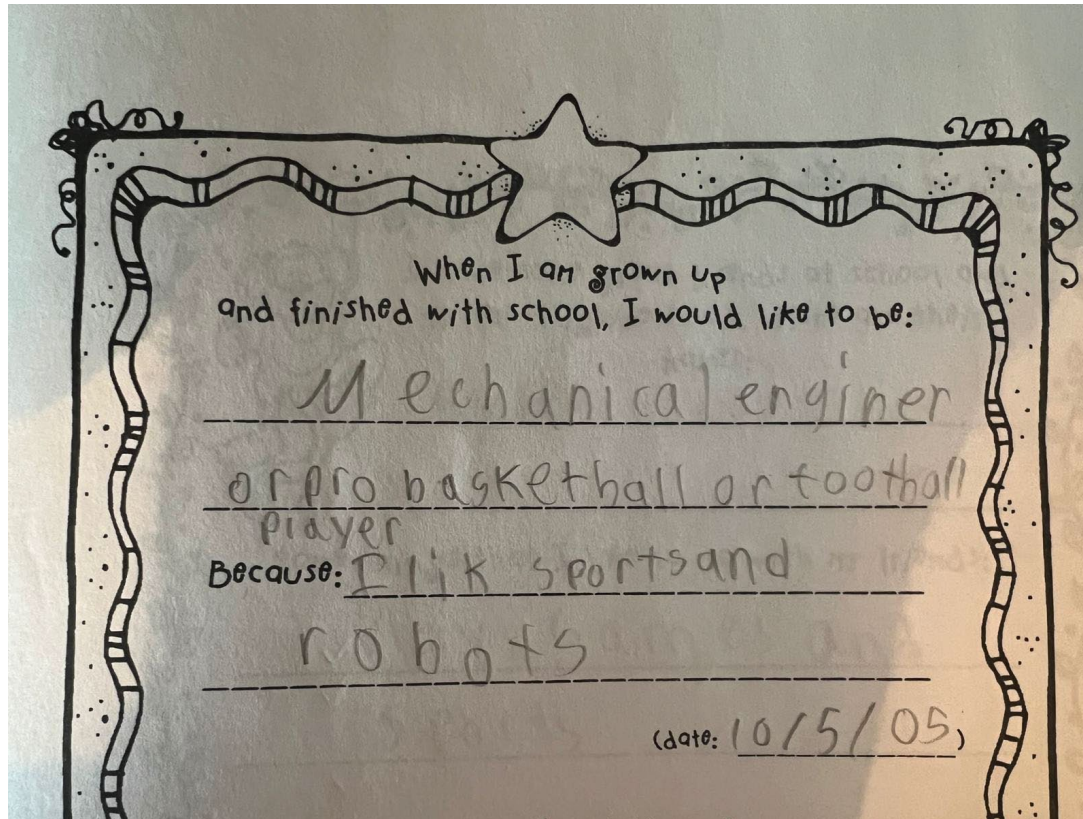 When I am grown up
and finished with school, I would like to be:
Mechanical enginer
or pro basketball or football
player
Because: I lik sports and
robots
(date: 10/5/05)